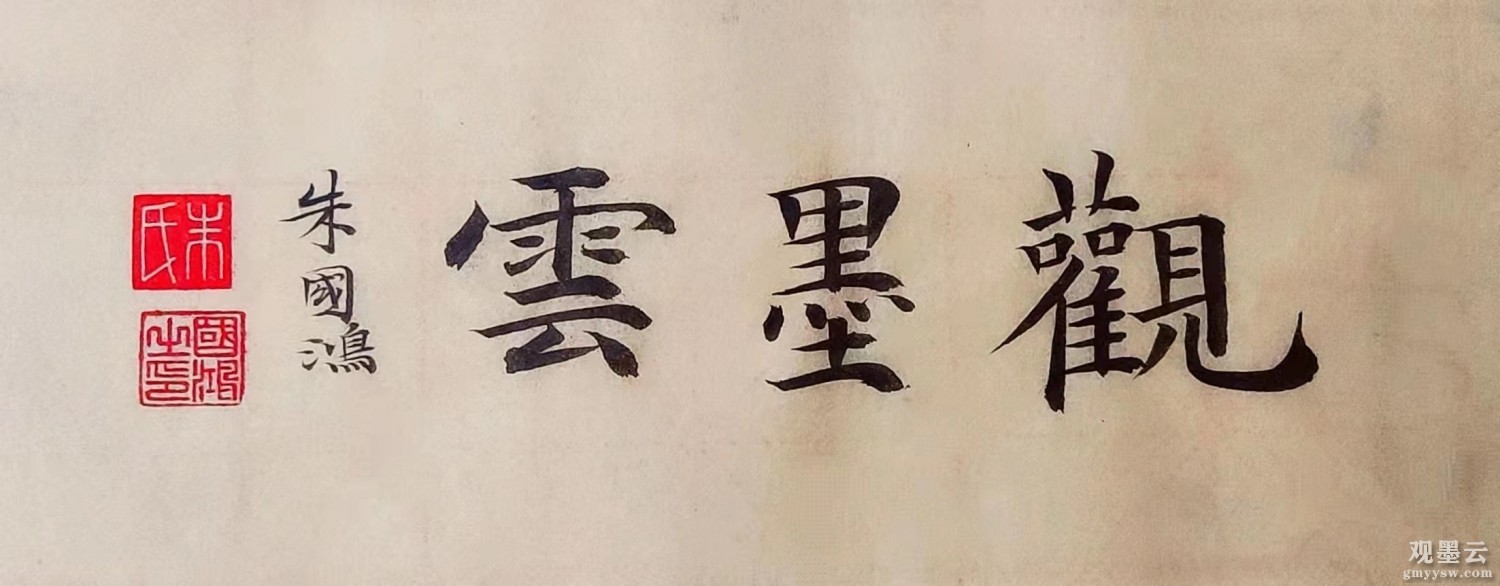 觀墨雲
朱國鴻
朱氏
國鴻之印
观墨云
gmyysw.com